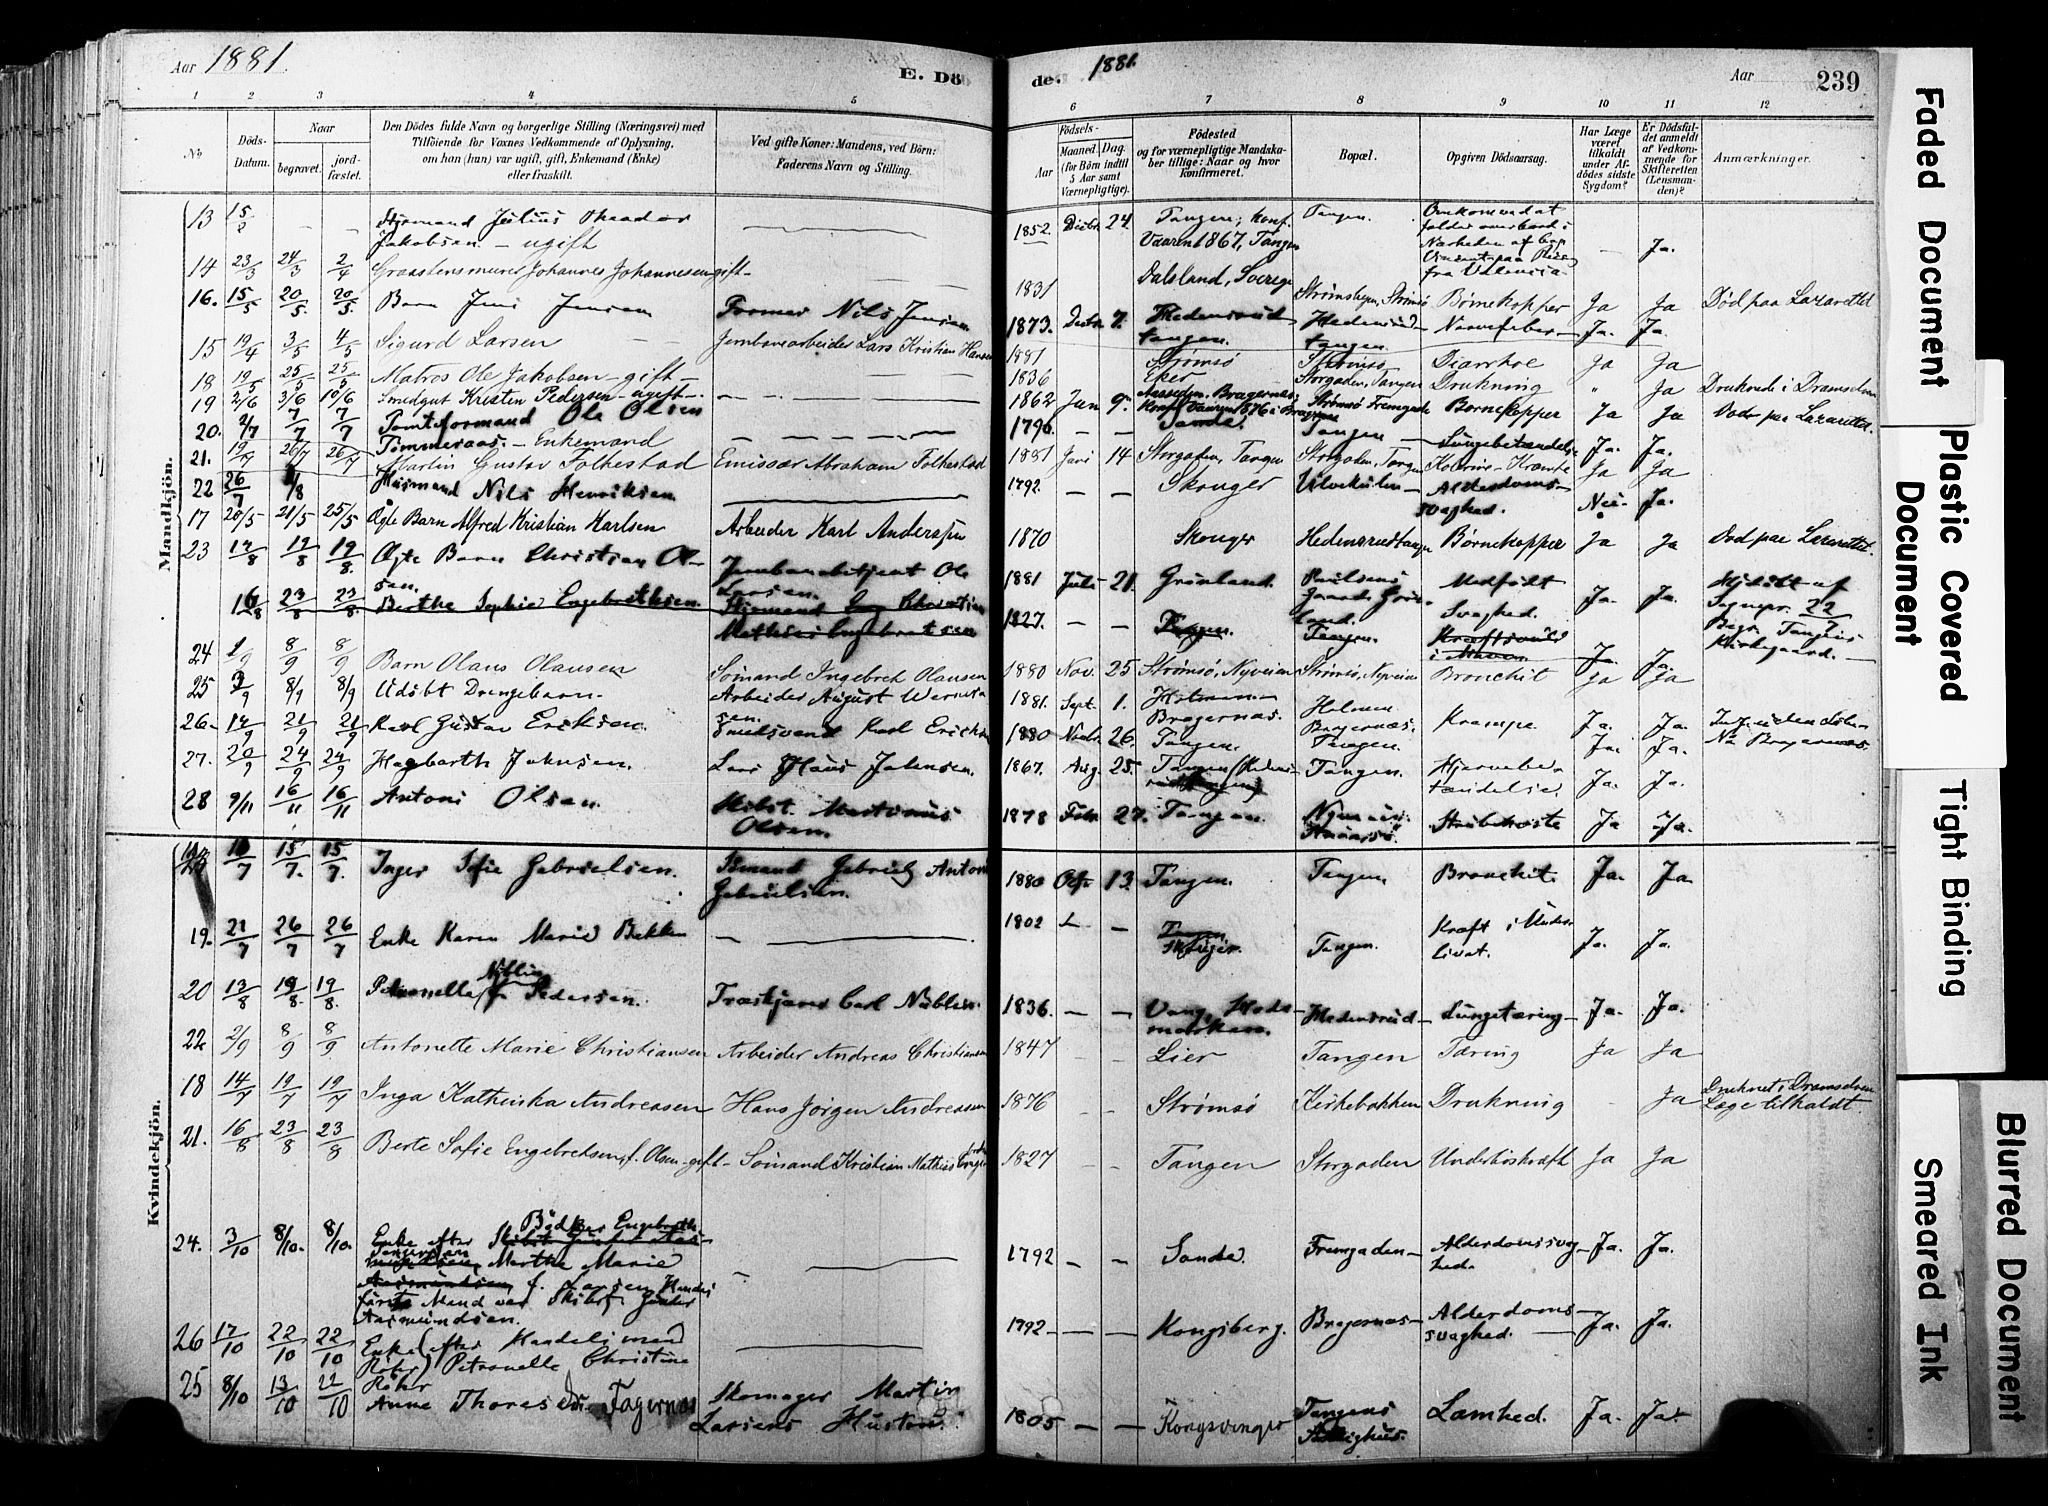 Aar 1881. E. Dö
de. 1881. Aar 239
1 2 3 4 5
6 7 8 9 10 11 12
No
Döds-
Datum.
Naar
begravet.
jord-
fæstet.
Den Dödes fulde Navn og borgerlige Stilling (Næringsvei) med
Tilföiende for Voxnes Vedkommende af Oplysning,
om han (hun) var ugift, gift, Enkemand (Enke)
eller fraskilt.
Ved gifte Koner: Mandens, ved Börn:
Faderens Navn og Stilling.
Födsels-
Aar
Maaned Dag
(for Börn indtil
5 Aar samt
Værnepligtige).
Födested
og for værnepligtige Mandska-
ber tillige: Naar og hvor
konfirmeret.
Bopæl.
Opgiven Dödsaarsag.
Har Læge
været
tilkaldt
under Af-
dödes sidste
Sygdom?
Er Dödsfal-
det anmeldt
af Vedkom-
mende for
Skifteretten
(Lensman-
den)?
Anmærkninger.
Mandkjön.
13 — — Julius Theodor
Jakobsen — ugift
1852. Decbr. 24. Tangen; konf. Vaaren 1867, Tangen Tangen. fra Valencia — Ja.
14 23/3 24/3 2/4 Graastensmurer Johannes Johannesen gift — — —
1831 Dalsland, Sverige Strømshagen, Strømsö Börnekopper Ja Ja Död paa Lazarettet
16. 15/5 20/5 20/5. Barn Jens Jensen Former Nils Jensen
1873. 7. Hedensrud tangen. Hedensrud tangen. Nervefeber Ja. Ja.
15 19/4 3/5 4/5 Sigurd Larsen Jernbanearbeider Lars Kristian Hansen
1881 Strömsö Strömsö Diarrhoe Ja Ja
18 19/5 25/5 25/5 Matros Ole Jakobsen — gift —
1836 Eker Storgaden, Tangen Drukning " Ja Druknede i Dramselven
19 2/6 3/6 10/6 Smedgut Kristen Pedersen — ugift —
1862 Jun 9. Bragernæs, Konf. Vaaren 1876 i Bragernæs Strömsö Tremgade Börnekopper Ja Ja Död paa Lazarettet.
20. 2/7 7/7 7/7 Tomteformand Ole Olsen
Tömmeraas. — Enkemand — — — — —
1796. — — Sande. Tangen — Lungebetændelse Ja. Ja.
21. 19/7 26/7 26/7 Martin Gustav Folkestad Emissær Abraham Folkestad
1881 Juni 14 Storgaden, Tangen Storgaden, Tangen Kolerine - Krampe Ja Ja
22 26/7 1/8 Husmand Nils Henriksen
1792. — — Skouger Ulvekulen — Alderdoms-
svaghed. Nei. Ja.
17 20/5 21/5 25/5 Ægte Barn Alfred Kristian Karlsen Arbeider Karl Andersen
1870 Skouger Hedensrudtangen Börnekopper Ja Ja Död paa Lazarettet.
23 14/8 19/8 19/8. Ægte Barn Christian Ol-
sen. Jernbanebetjent Ole
Larsen.
1881 Juli 21. Grönland. Medfödt
Svaghed. Ja. Ja. Hjdöbt af
Sognepr. 22/7
Begr. Tangens
Kirkegaard.
16/8 23/8 23/8 Berthe Sophie Engebrethsen Sjömand Christian
Mathias Engebretsen
1827. — — Tangen. Tangen. Kræftsvulst
i Maven Ja. Ja.
24 1/9 8/9 8/9 Barn Olaus Olausen Sömand Ingebret Olausen
1880 Nov. 25 Strömsö, Nyveien Strömsö, Nyveien Bronchit Ja Ja
25 3/9 8/9 8/9 Udöbt Drengebarn. Arbeider August Wernes-
sen.
1881. Sept. 1. Holmen —
Bragernæs. Holmen
Bragernæs. Krampe. Ja. Ja.
26. 14/9 21/9 21/9 Karl Gustav Eriksen. Smedsvend Karl Eriksen
1880 Novbr. 26. Tangen. Tangen. Ja. Ja.
27. 20/9 24/9 24/9 Hagbarth Johnsen. Lars Hans Johnsen.
1867. Aug. 25. Tangen Tangen. Hjernebe-
tændelse. Ja. Ja.
28 9/11 16/11 16/11 Antoni Olsen. Skibst. Martinius
Olsen.
1878 Febr. 27. Tangen. Strubehoste Ja Ja.
Kvindekjön.
10/7 15/7. 15/7. Inger Sofie Gabrielsen. Sömand Gabriel Anton
Gabrielsen.
1880 Octr 13. Tangen. Tangen. Bronchit. Ja. Ja.
19. 21/7 26/7 26/7 Enke Karen Marie Bakken —
1802 — — Tangen
Skouger. Tangen. Kræft i Under-
livet. Ja. Ja.
20 13/8 19/8. 19/8. Nüblin
Petronelle f. Pedersen. Træskjærer Carl Nüblin.
1836. — — Vang, Hede-
marken. Hedensrud — Lungetæring — Ja. Ja.
22 2/9 8/9 8/9 Antonette Marie Christiansen Arbeider Andreas Christiansen
1847 Lier Tangen Tæring Ja Ja
18 14/7 19/7 19/7 Inga Kathinka Andreasen Hans Jörgen Andreasen
1876 — — Strömsö Kirkebakken Drukning Ja Druknet i Dramselven
Læge tilkaldt.
21. 16/8 23/8 23/8 Berte Sofie Engebretsen, f. Olsen - gift — Sömand Kristian Mathias
1827 — — Tangen Storgaden Underlivskræft Ja Ja
24. 3/10 8/10. 8/10. Bödker Engebreth
Enke efter
Marthe Marie
f. Larsen. Hendes
förste Mand var Skibst.
Aasmundsen.
1792 — — Sande. Tremgaden — Alderdomssvag-
hed. Ja. Ja.
26 17/10 22/10 22/10 Enke (efter Handelsmand
Röhr) Petronelle Christine
Röhr
1792 — — — Kongsberg. Bragernæs — Alderdoms-
svaghed. — Ja. Ja.
25 8/10 13/10 22/10 Anne Thoresen Fagernes Skomager Martin
Larsens Hustru.
1805 — — Kongsvinger Tangens
Fattighus. Lamhed. Ja. Ja.
Faded Document
Plastic Covered
Document
Tight Binding
Blurred Document
Smeared Ink